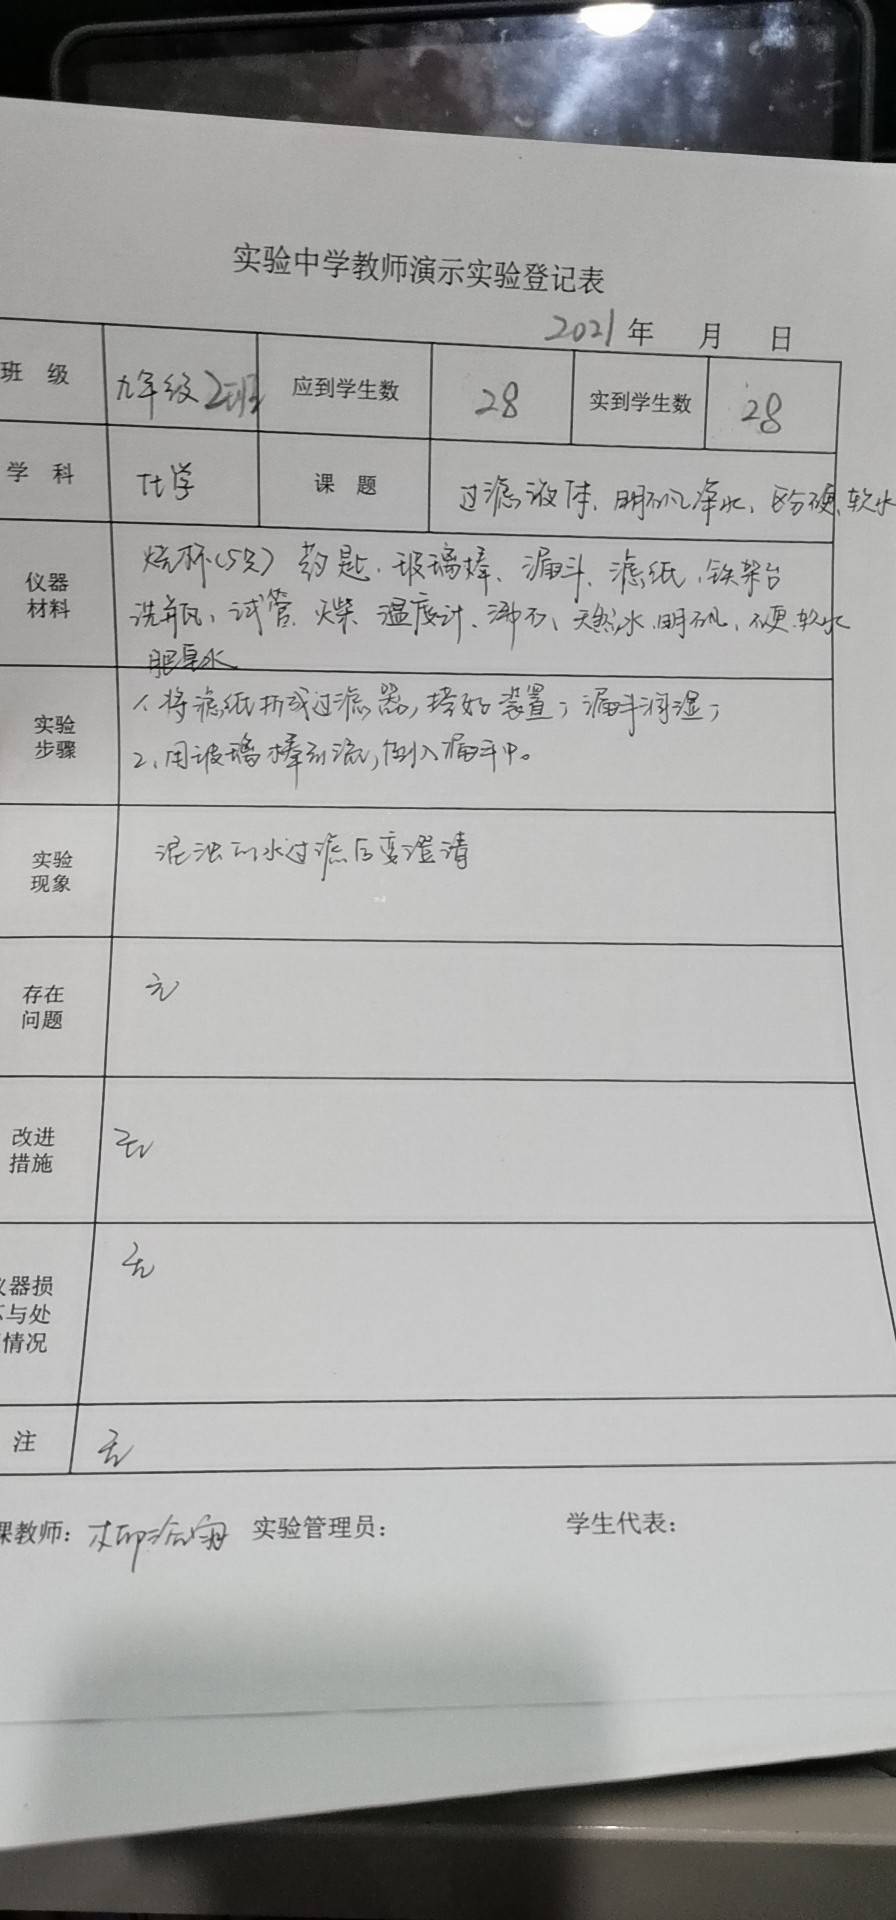 实验中学教师演示实验登记表
2021年 月 日
班 级 九年级2班 应到学生数 28 实到学生数 28
学 科 化学 课 题 过滤液体、明矾净水、区分硬、软水
仪器
材料
烧杯(5只) 药匙、玻璃棒、漏斗、滤纸、铁架台
洗瓶、试管、火柴、温度计、沸石、天然水、明矾、硬、软水
肥皂水
实验
步骤
1、将滤纸折成过滤器,搭好装置,漏斗润湿,
2、用玻璃棒引流,倒入漏斗中。
实验
现象
混浊的水过滤后变澄清
存在
问题
无
改进
措施
无
仪器损
与处
情况
无
注 无
课教师: 实验管理员: 学生代表: